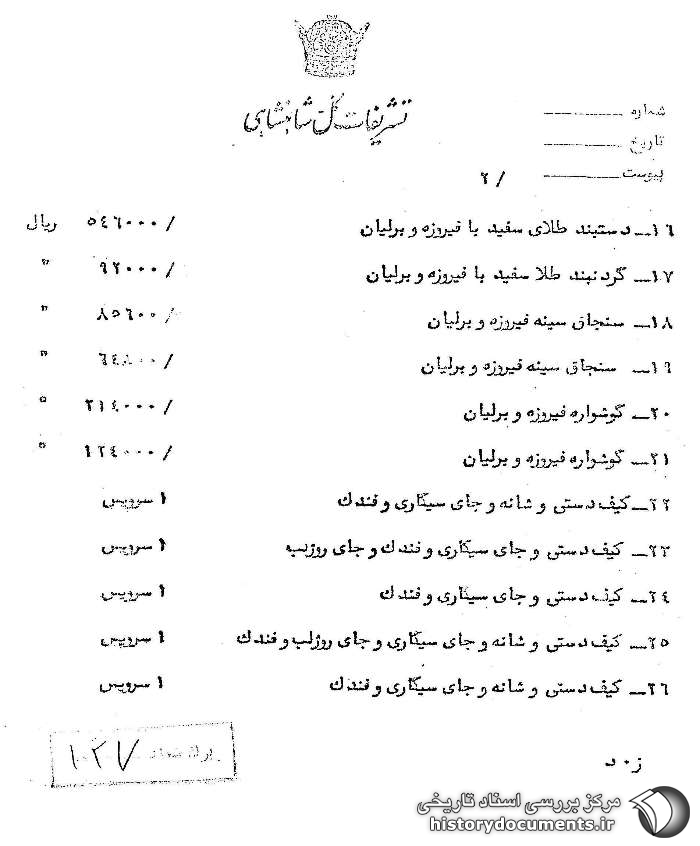 تشریفات کل شاهنشاهی
شماره
تاریخ
پیوست
/ ۲
۱۶ــ دستبند طلای سفید با فیروزه و برلیان /۵۴۶۰۰۰ ریال
۱۷ــ گردنبند طلا سفید با فیروزه و برلیان /۹۲۰۰۰ "
۱۸ــ سنجاق سینه فیروزه و برلیان /۸۵۶۰۰ "
۱۹ــ سنجاق سینه فیروزه و برلیان /۶۴۸۰۰ "
۲۰ــ گوشواره فیروزه و برلیان /۲۱۴۰۰۰ "
۲۱ــ گوشواره فیروزه و برلیان /۱۲۴۰۰۰ "
۲۲ــ کیف دستی و شانه و جای سیگاری و فندك ۱ سرویس
۲۳ــ کیف دستی و جای سیگاری و فندك و جای روژلب ۱ سرویس
۲۴ــ کیف دستی و جای سیگاری و فندك ۱ سرویس
۲۵ــ کیف دستی و شانه و جای سیگاری و جای روژلب و فندك ۱ سرویس
۲۶ــ کیف دستی و شانه و جای سیگاری و فندك ۱ سرویس
ز۰د
برگ شماره ۱۰۲۷
مرکز بررسی اسناد تاریخی
historydocuments.ir